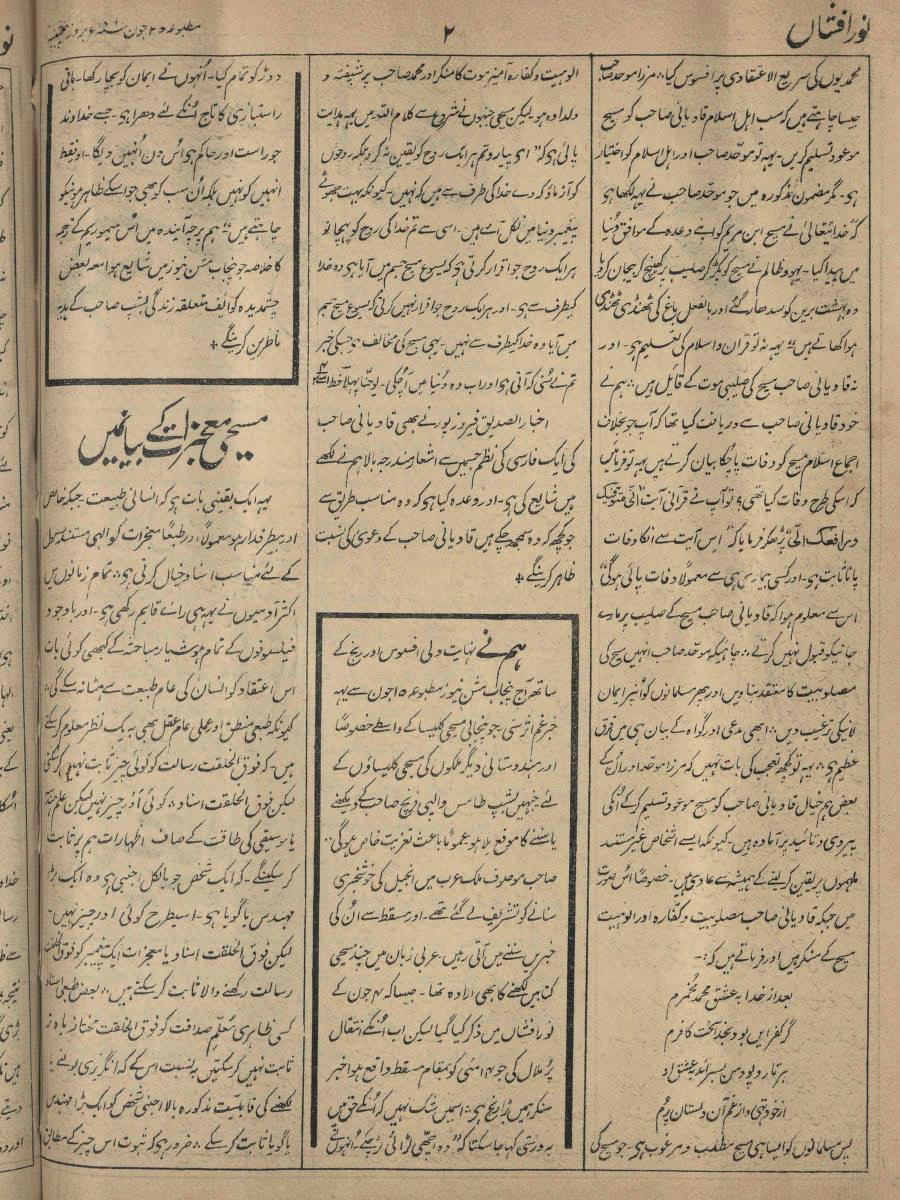 نور افشاں
۲
مطبوعہ ۲۵ جون سنہ ۱۸۹۱ء بروز پنجشنبہ
محمدیوں کی سریع الاعتقادی پر افسوس کیا۔ مرزا موحد صاحب
جیسا چاہتے ہیں کہ سب اہل اسلام قادیانی صاحب کو مسیح
موعود تسلیم کریں۔ یہہ تو موحد صاحب اور اہل اسلام کو اختیار
ہی۔ مگر مضمون مذکورہ میں جو موحد صاحب نے یہہ لکھا ہو
کہ خدایتعالیٰ نے مسیح ابن مریم کو اپنے وعدہ کے موافق دنیا
میں پیدا کیا۔ یہود ظالم نے مسیح کو پکڑ کر صلیب پر کھینچ کر بیجان کر دیا
وہ بہشت برین کو سدھار گئے اور بالفعل باغ کی ٹھنڈی ٹھنڈی
ہوا کھاتے ہیں‘‘ یہہ نہ تو قران و اسلام کی تعلیم ہی۔ اور
نہ قادیانی صاحب مسیح کی صلیبی موت کے قایل ہیں۔ ہم نے
خود قادیانی صاحب سے دریافت کیا تھا کہ آپ جو بخلاف
اجماع اسلام مسیح کو وفات پاچکا بیان کرتے ہیں یہہ تو فرمائیں
کہ اسکی طرح وفات کیا تھی؟ تو آپ نے قرانی آیت انی متوفیک
و رافعک الیّ پڑھکر فرمایا کہ ’’اس آیت سے انکا وفات
پانا ثابت ہی۔ اور کسی بیماری ہی سے معمولاً وفات پائی ہوگی‘‘
اس سے معلوم ہوا کہ قادیانی صاحب مسیح کے صلیب پر مارے
جانیکو قبول نہیں کرتے۔ چاہیئے کہ موحد صاحب انہیں مسیح کی
مصلوبیت کا معتقد بناویں اور پھر مسلمانوں کو اُنپر ایمان
لانیکی ترغیب دیں۔ ابھی مدعی اور گواہ کے بیان ہی میں فرق
عظیم ہی۔ یہہ تو کچھ تعجب کی بات نہیں کہ مرزا موحد اور اُن کے
بعض ہم خیال قادیانی صاحب کو مسیح موعود تسلیم کر کے اُنکی
پیروی و تائید پر آمادہ ہیں۔ کیونکہ ایسے اشخاص غیر مستند
ملہموں پر یقین کر لینے کے ہمیشہ سے عادی ہیں۔ خصوصاً اس صورت
میں جبکہ قادیانی صاحب مصلوبیت و کفارہ اور الوہیت
مسیح کے منکر ہیں اور فرماتے ہیں کہ:۔
بعد از خدا بہ عشق محمد مخمرم
گر کفر ایں بود بخدا سخت کافرم
ہر تار و پود من بسراید بعشق او
از خود تہی و از غم آن دلستان پرم
پس مسلمانوں کو ایسا ہی مسیح مطلب و مرغوب ہی۔ جو مسیح کی
الوہیت و کفارہ آمیز موت کا منکر اور محمد صاحب پر شیفتہ و
دلدادہ ہو لیکن مسیحی جنہوں نے شروع سے کلام اللہ میں یہہ ہدایت
پائی ہی کہ ’’ای پیارو تم ہر ایک روح کو یقین نہ کرو بلکہ روحوں
کو آزماؤ کہ وے خدا کی طرف سے ہیں کہ نہیں۔ کیونکہ بہت جھوٹے
پیغمبر دنیا میں نکل آئے ہیں۔ اسی سے تم خدا کی روح کو پہچانو
ہر ایک روح جو اقرار کرتی ہی کہ یسوع مسیح جسم میں آیا ہی وہ خدا
کیطرف سے ہی۔ اور ہر ایک روح جو اقرار نہیں کرتی کہ یسوع مسیح جسم
میں آیا وہ خدا کیطرف سے نہیں۔ یہی مسیح کی مخالف ہو جسکی خبر
تم نے سُنی کہ آتی ہی اور اب وہ دنیا میں آچکی۔ یوحنا پہلا خط
اخبار الصدیق فیروزپور نے بھی قادیانی صاحب
کی ایک فارسی کی نظم جسمیں سے اشعار مندرجہ بالا ہم نے لکھے
ہیں شایع کی ہی۔ اور وعدہ کیا ہی کہ وہ مناسب طریق سے
جو کچھ کہ وہ سمجھ چکے ہیں قادیانی صاحب کے دعویٰ کی نسبت
ظاہر کرینگے +
ہم نے نہایت دلی افسوس اور رنج کے
ساتھ آج پنجاب مشن نیوز مطبوعہ ۱۵ جون سے یہہ
خبر غم اثر سنی۔ جو پنجابی مسیحی کلیسیا کے واسطے خصوصاً
اور ہندوستانی دیگر ملکوں کی مسیحی کلیسیاؤں کے
لئے جنہیں بشپ طامس والپی فرنچ صاحب کے دیکھنے
یا سننے کا موقع ملا ہو عموماً باعث تعزیت خاص ہوگی۔
صاحب موصوف ملک عرب میں انجیل کی خوشخبری
سنانے کو تشریف لے گئے تھے۔ اور مسقط سے اُن کی
خبریں سننے میں آتی رہیں۔ عربی زبان میں چند مسیحی
کتابیں لکھنے کا بھی ارادہ تھا۔ جیسا کہ ۴ جون کے
نور افشاں میں ذکر کیا گیا لیکن اب انکے انتقال
پُر ملال کی جو ۱۴ مئی کو بمقام مسقط واقع ہوا خبر
سنکر ہمیں بڑا رنج ہی۔ اسمیں شک نہیں کہ اُنکے حق میں
بہ درستی کہا جا سکتا کہ ’’وہ اچھی لڑائی لڑ چکے۔ اُنہوں نے
دوڑ کو تمام کیا۔ اُنہوں نے ایمان کو بچا رکھا۔ باقی
راستبازی کا تاج اُنکے لئے دھرا ہی۔ جسے خداوند
جو راست اور حاکم ہی اُس دن اُنہیں دیگا۔ اور فقط
انہیں کو نہیں بلکہ اُن سب کو بھی جو اسکے ظاہر ہونیکو
چاہتے ہیں‘‘ ہم پرچہ آیندہ میں اُس میموریم کے ترجمہ
کا خلاصہ جو پنجاب مشن نیوز میں شایع ہوا معہ بعض
چشمدیدہ کوایف متعلقہ زندگی بشپ صاحب کے ہدیہ
ناظرین کرینگے +
مسیحی معجزات کے بیانمیں
یہہ ایک یقینی بات ہی کہ انسانی طبیعت جبکہ خالص
اور بیطرفدار ہو معمولاً اور طبعاً معجزات کو الٰہی مستند رسول
کے لئے مناسب اسناد خیال کرتی ہی۔ تمام زمانوں میں
اکثر آدمیوں نے یہہ ہی رائے قایم رکھی ہی۔ اور باوجود
فیلسوفوں کے تمام ہوشیار مباحثہ کے کبھی کوئی بات
اس اعتقاد کو انسان کی عام طبیعت سے مٹا نہ سکے گی۔
کیونکہ طبعی منطق اور عملی عام عقل بھی بہ یک نظر معلوم کر سکتے
ہیں۔ کہ فوق الخلقت رسالت کو کوئی چیز ثابت نہیں کر سکتی
لیکن فوق الخلقت اسناد۔ کوئی اور چیز نہیں لیکن علم ہندسہ
یا موسیقی کی طاقت کے صاف اظہارات ہم پر ثابت
کر سکینگے۔ کہ ایک شخص جو بالکل اجنبی ہو وہ ایک بڑا
مہندس یا گویا ہی۔ اسیطرح کوئی اور چیز نہیں۔
لیکن فوق الخلقت اسناد یا معجزات ایک پیغمبر کو فوق الخلقت
رسالت رکھنے والا ثابت کر سکتے ہیں۔ بعض طبعی اسناد
کسی ظاہری معلم صداقت کو فوق الخلقت مختار زیادہ تر
ثابت نہیں کر سکتیں بہ نسبت اس کے کہ انگریزی بولنے یا
لکھنے کی قابلیت مذکورہ بالا اجنبی شخص کو ایک بڑا مہندس
یا گویا ثابت کر سکے۔ ضرور ہی کہ ثبوت اس چیز کے مطابق